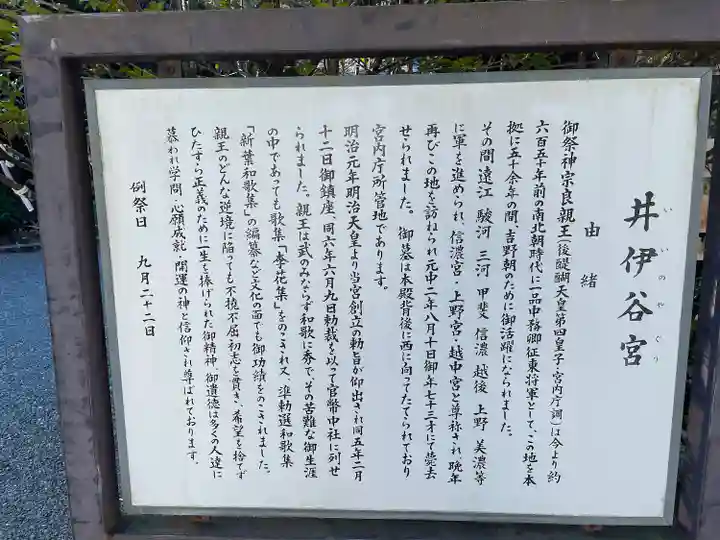 井伊谷宮
いいのやぐう
由緒
御祭神宗良親王(後醍醐天皇第四皇子・宮内庁調)は今より約
六百五十年前の南北朝時代に一品中務卿征東将軍として、この地を本
拠に五十余年の間、吉野朝のために御活躍になられました。
その間遠江 駿河 三河 甲斐 信濃 越後 上野 美濃等
に軍を進められ、信濃宮・上野宮・越中宮と尊称され、晩年
再びこの地を訪ねられ元中二年八月十日御年七十三才にて薨去
せられました。 御墓は本殿背後に西に向ってたてられており
宮内庁所管地であります。
明治元年明治天皇より当宮創立の勅旨が仰出され同五年二月
十二日御鎮座、同六年六月九日勅裁を以って官幣中社に列せ
られました。親王は武のみならず和歌に秀で、その苦難な御生涯
の中であっても歌集「李花集」をのこされ又、準勅選和歌集
「新葉和歌集」の編纂など文化の面でも御功績をのこされました。
親王のどんな逆境に陥っても不撓不屈初志を貫き、希望を捨てず
ひたすら正義のために一生を捧げられた御精神、御遺徳は多くの人達に
慕われ学問・心願成就・開運の神と信仰され尊ばれております。
例祭日 九月二十二日